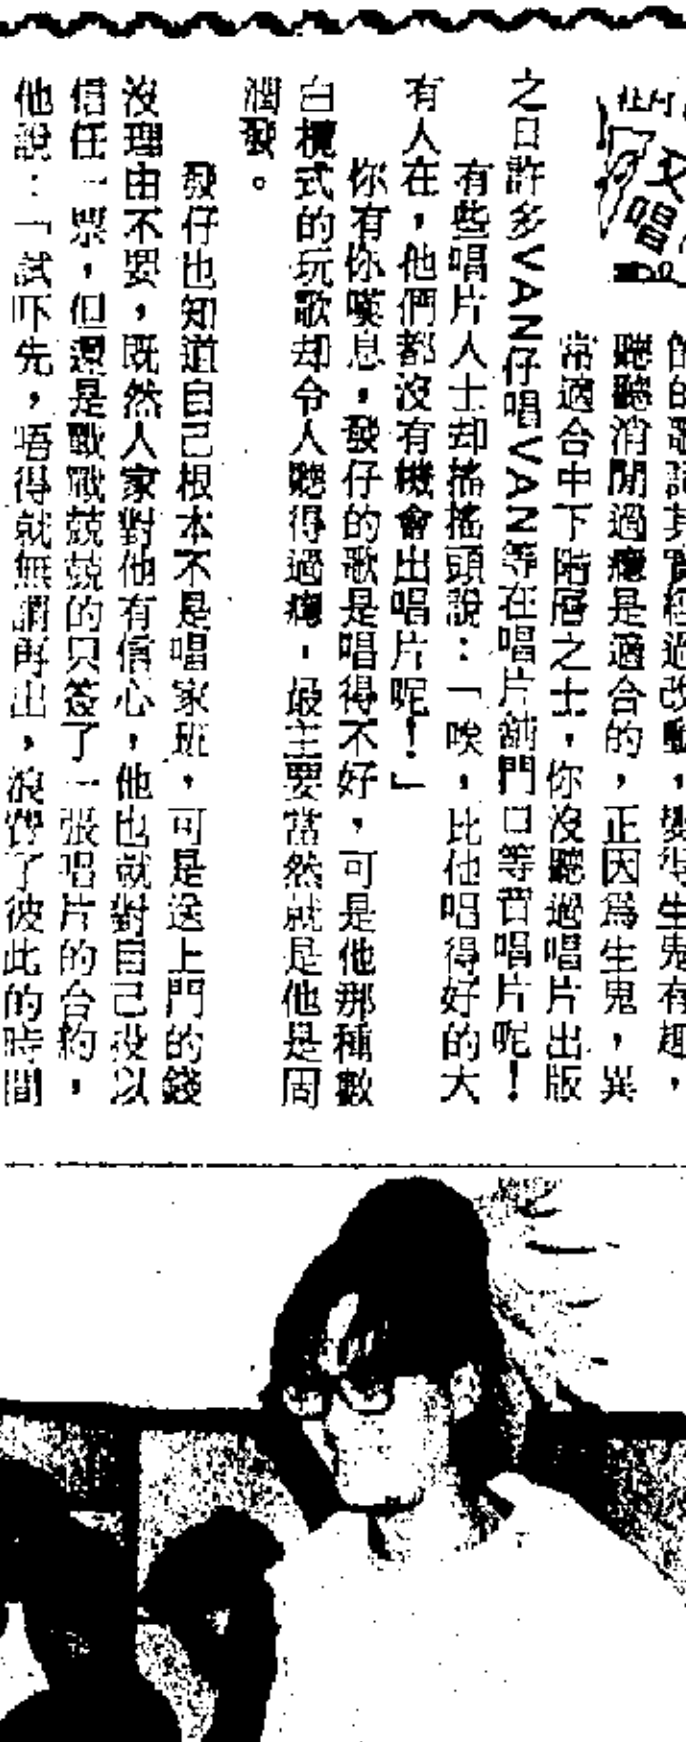 唱
的歌詞其實經過改動，變得生鬼有趣，
聽聽消閒過癮是適合的，正因為生鬼，異
常適合中下階層之士，你沒聽過唱片出版
之日許多VAN仔唱VAN等在唱片舖門口等買唱片呢！
有些唱片人士却搖搖頭說：「唉，比他唱得好的大
有人在，他們都沒有機會出唱片呢！」
你有你嘆息，發仔的歌是唱得不好，可是他那種數
白欖式的玩歌却令人聽得過癮，最主要當然就是他是周
潤發。
發仔也知道自己根本不是唱家班，可是送上門的錢
沒理由不要，既然人家對他有信心，他也就對自己投以
信任一票，但還是戰戰兢兢的只簽了一張唱片的合約，
他說：「試吓先，唔得就無謂再出，浪費了彼此的時間